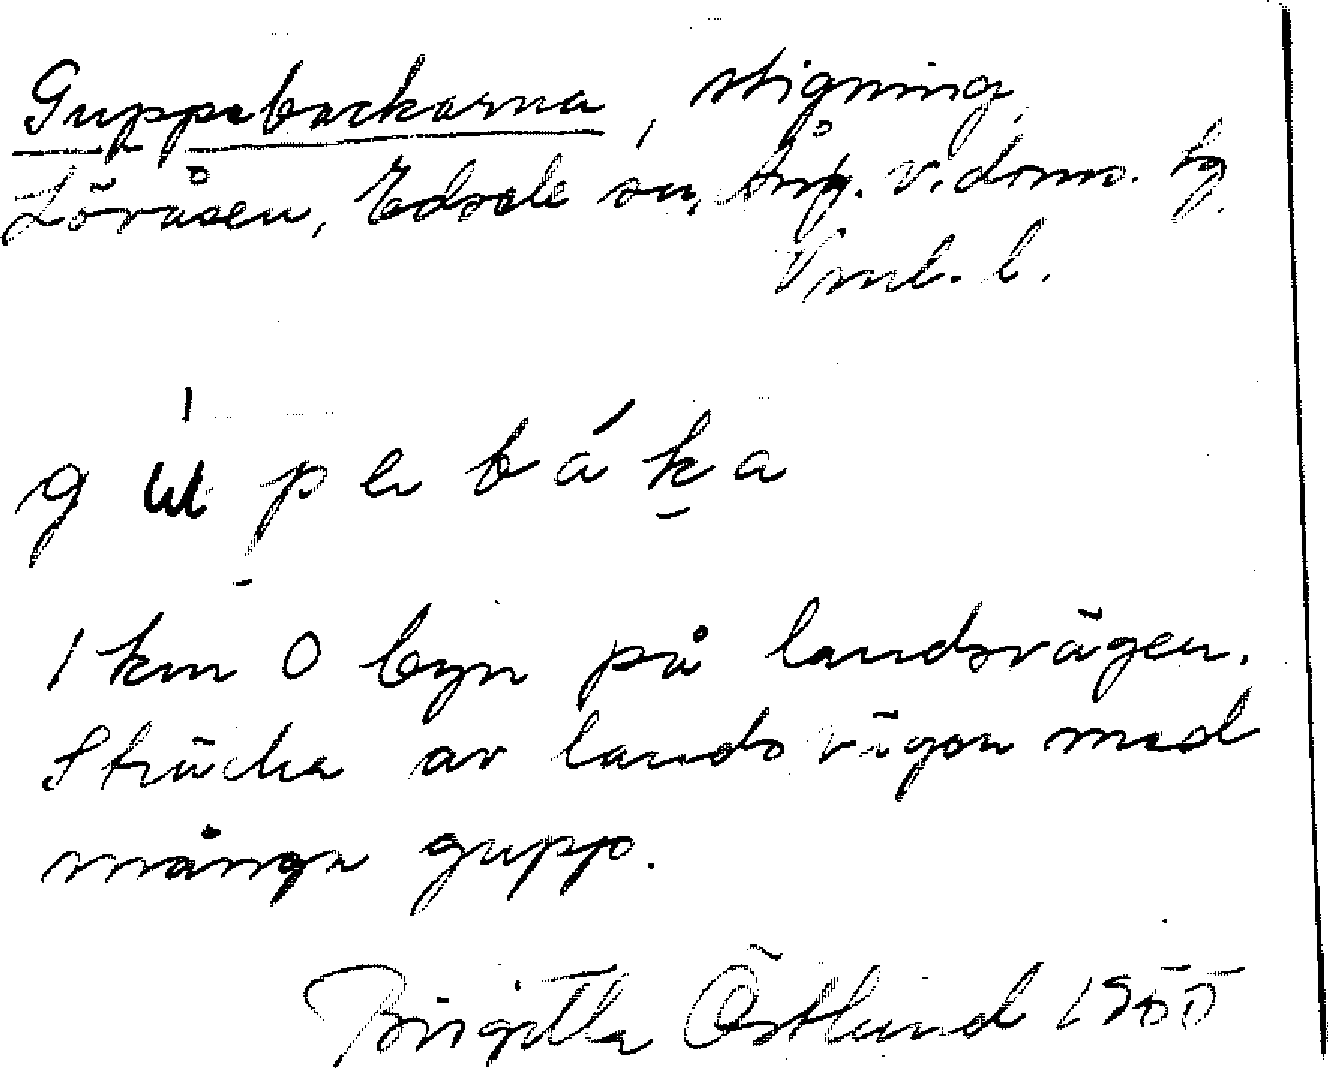 Guppebackarna, stigning,
Lövåsen, Edsele sn, Ång. v. doms. hg
Vml. l.
gúpebáka
1 km O byn på landsvägen.
Sträcka av landsvägen med
många gupp.
Birgitta Östlund 1955